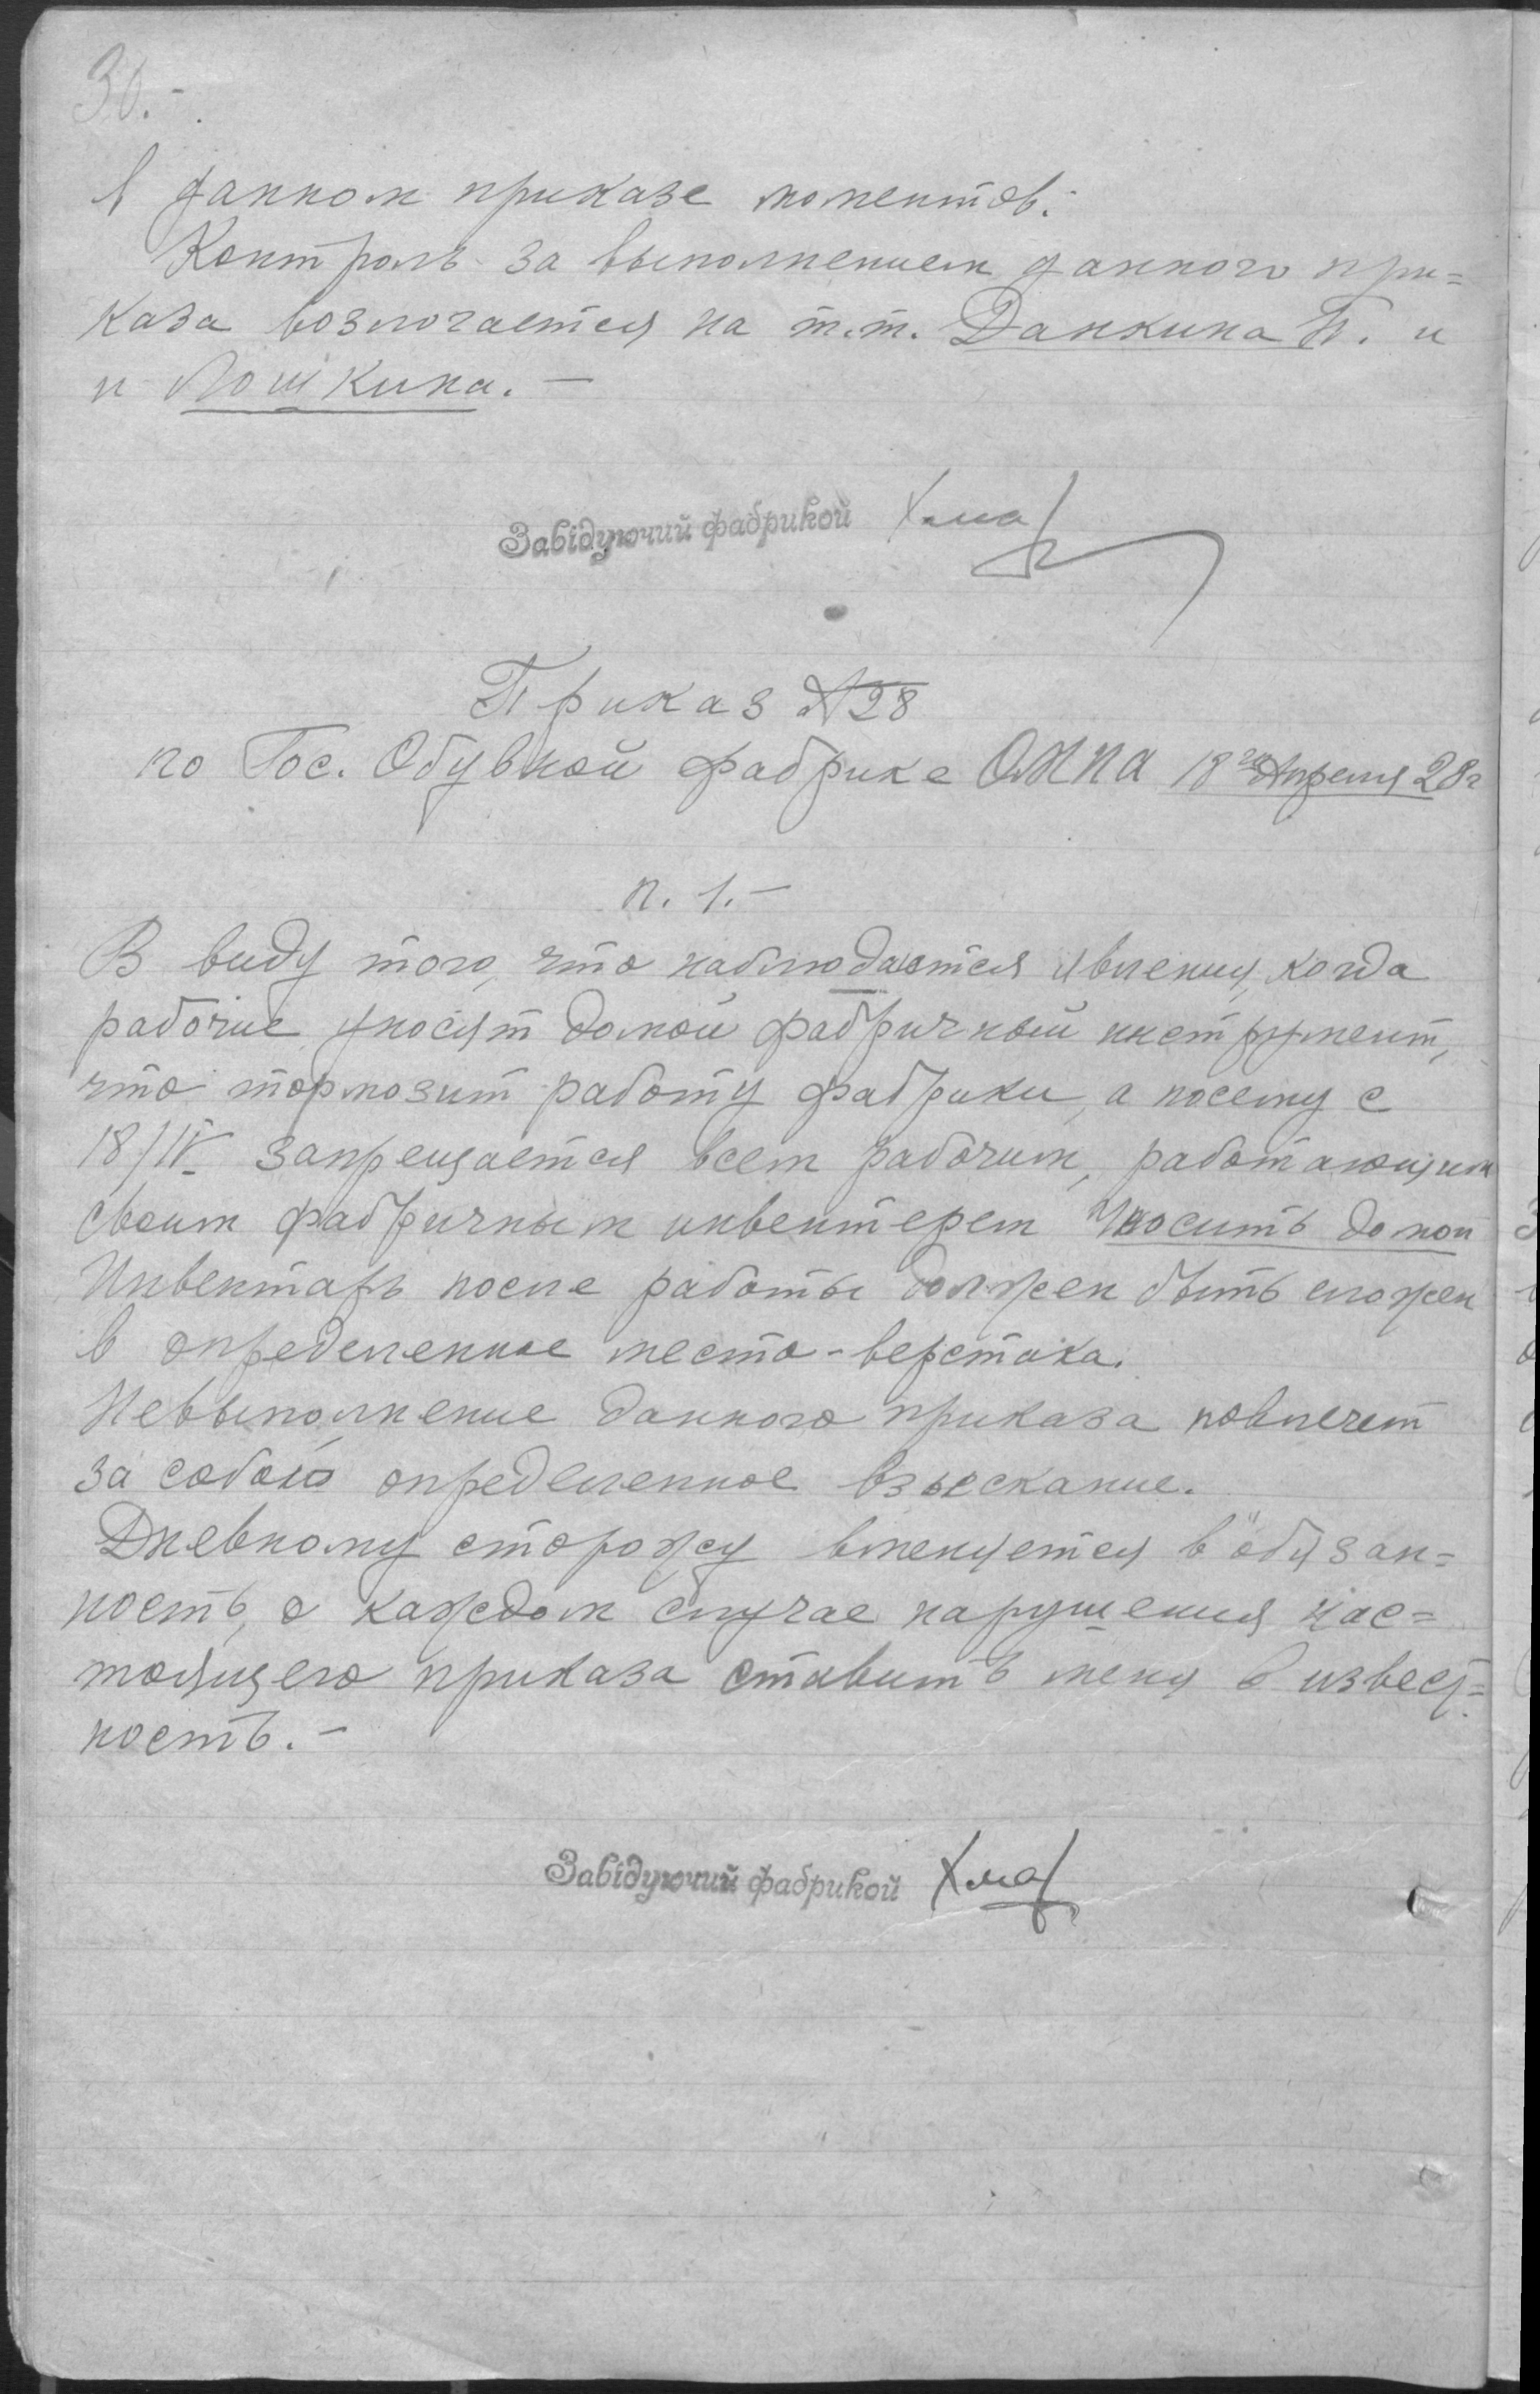 30.-
в данном приказе моментов.
Контроль за выполнением данного при=
каза возлогается на т.т. Данкина П. и
и Лошкина. —
Завідуючий фабрикой
Приказ №28
по Гос. Обувной фабрике 18го Апреля 28г
п. 1. —
В виду того, что наблюдаются явления, когда
рабочие уносят домой фабричный инструмент,
что тормозит работу фабрики, а посему с
18/IV запрещается всем рабочим, работающим
своим фабричным инвентерем уносить домой
Инвентарь после работы должен быть сложен
в определенное место - верстака.
Невыполнение данного приказа повлечет
за собою определенное взыскание.
Дневному сторожу вменяется в обязан=
ность, о каждом случае нарушения нас=
тоящего приказа ставить меня в извест=
ность. —
Завідуючий фабрикой